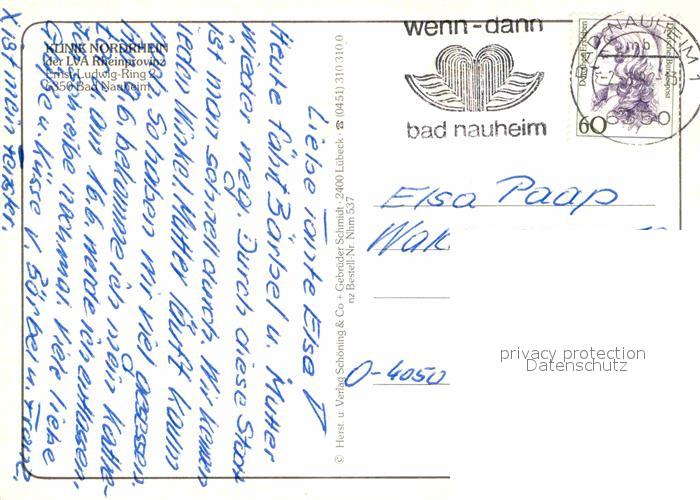 KLINIK NORDRHEIN
der LVA Rheinprovinz
Ernst-Ludwig-Ring 2
6350 Bad Nauheim
Liebe Tante Elsa
Heute fährt Bärbel u. Mutter
wieder weg. Durch diese Stadt
ist man schnell durch. Wir kennen
jeden Winkel. Mutter läuft kaum
Wir haben viel gegessen.
bekomme ich mein
Am 16.6 werde ich entlassen.
Ich schreibe nochmal. Viel liebe
Grüße u. Küsse v. Bärbel u.
X ist mein Fenster.
© Herst. u. Verlag Schöning & Co + Gebrüder Schmidt · 2400 Lübeck · ☎ (0451) 310 310 0
nz Bestell-Nr. Nhm 537
wenn-dann
bad nauheim
BAD NAUHEIM 1
mb
6350
60
Deutsche Bundespost
Elsa Paap
O-4050
privacy protection
Datenschutz